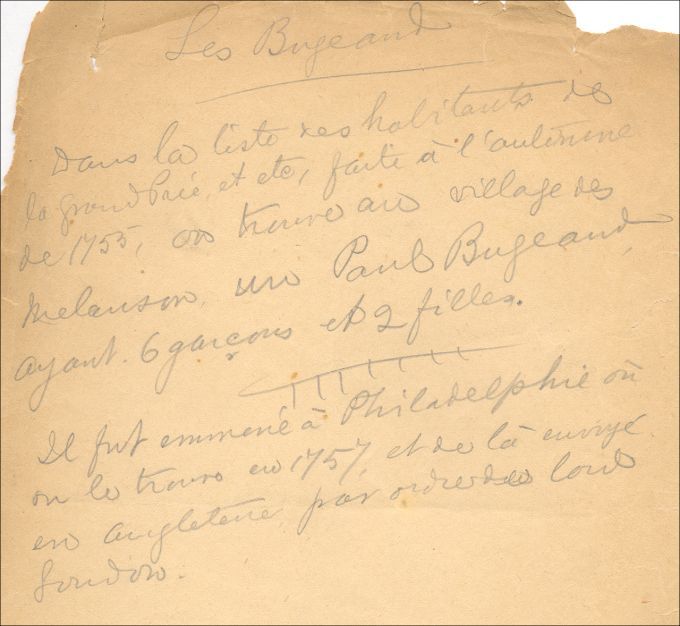 Les Bugeaud
Dans la liste des habitants de
la grand Prée, et etc, faite à l'automne
de 1755, on trouve au village des
Melanson, un Paul Bugeaud,
ayant 6 garçons et 2 filles.
Il fut emmené à Philadelphie où
on le trouve en 1757, et de là envoyé
en Angleterre par ordre de lord
Loudon.